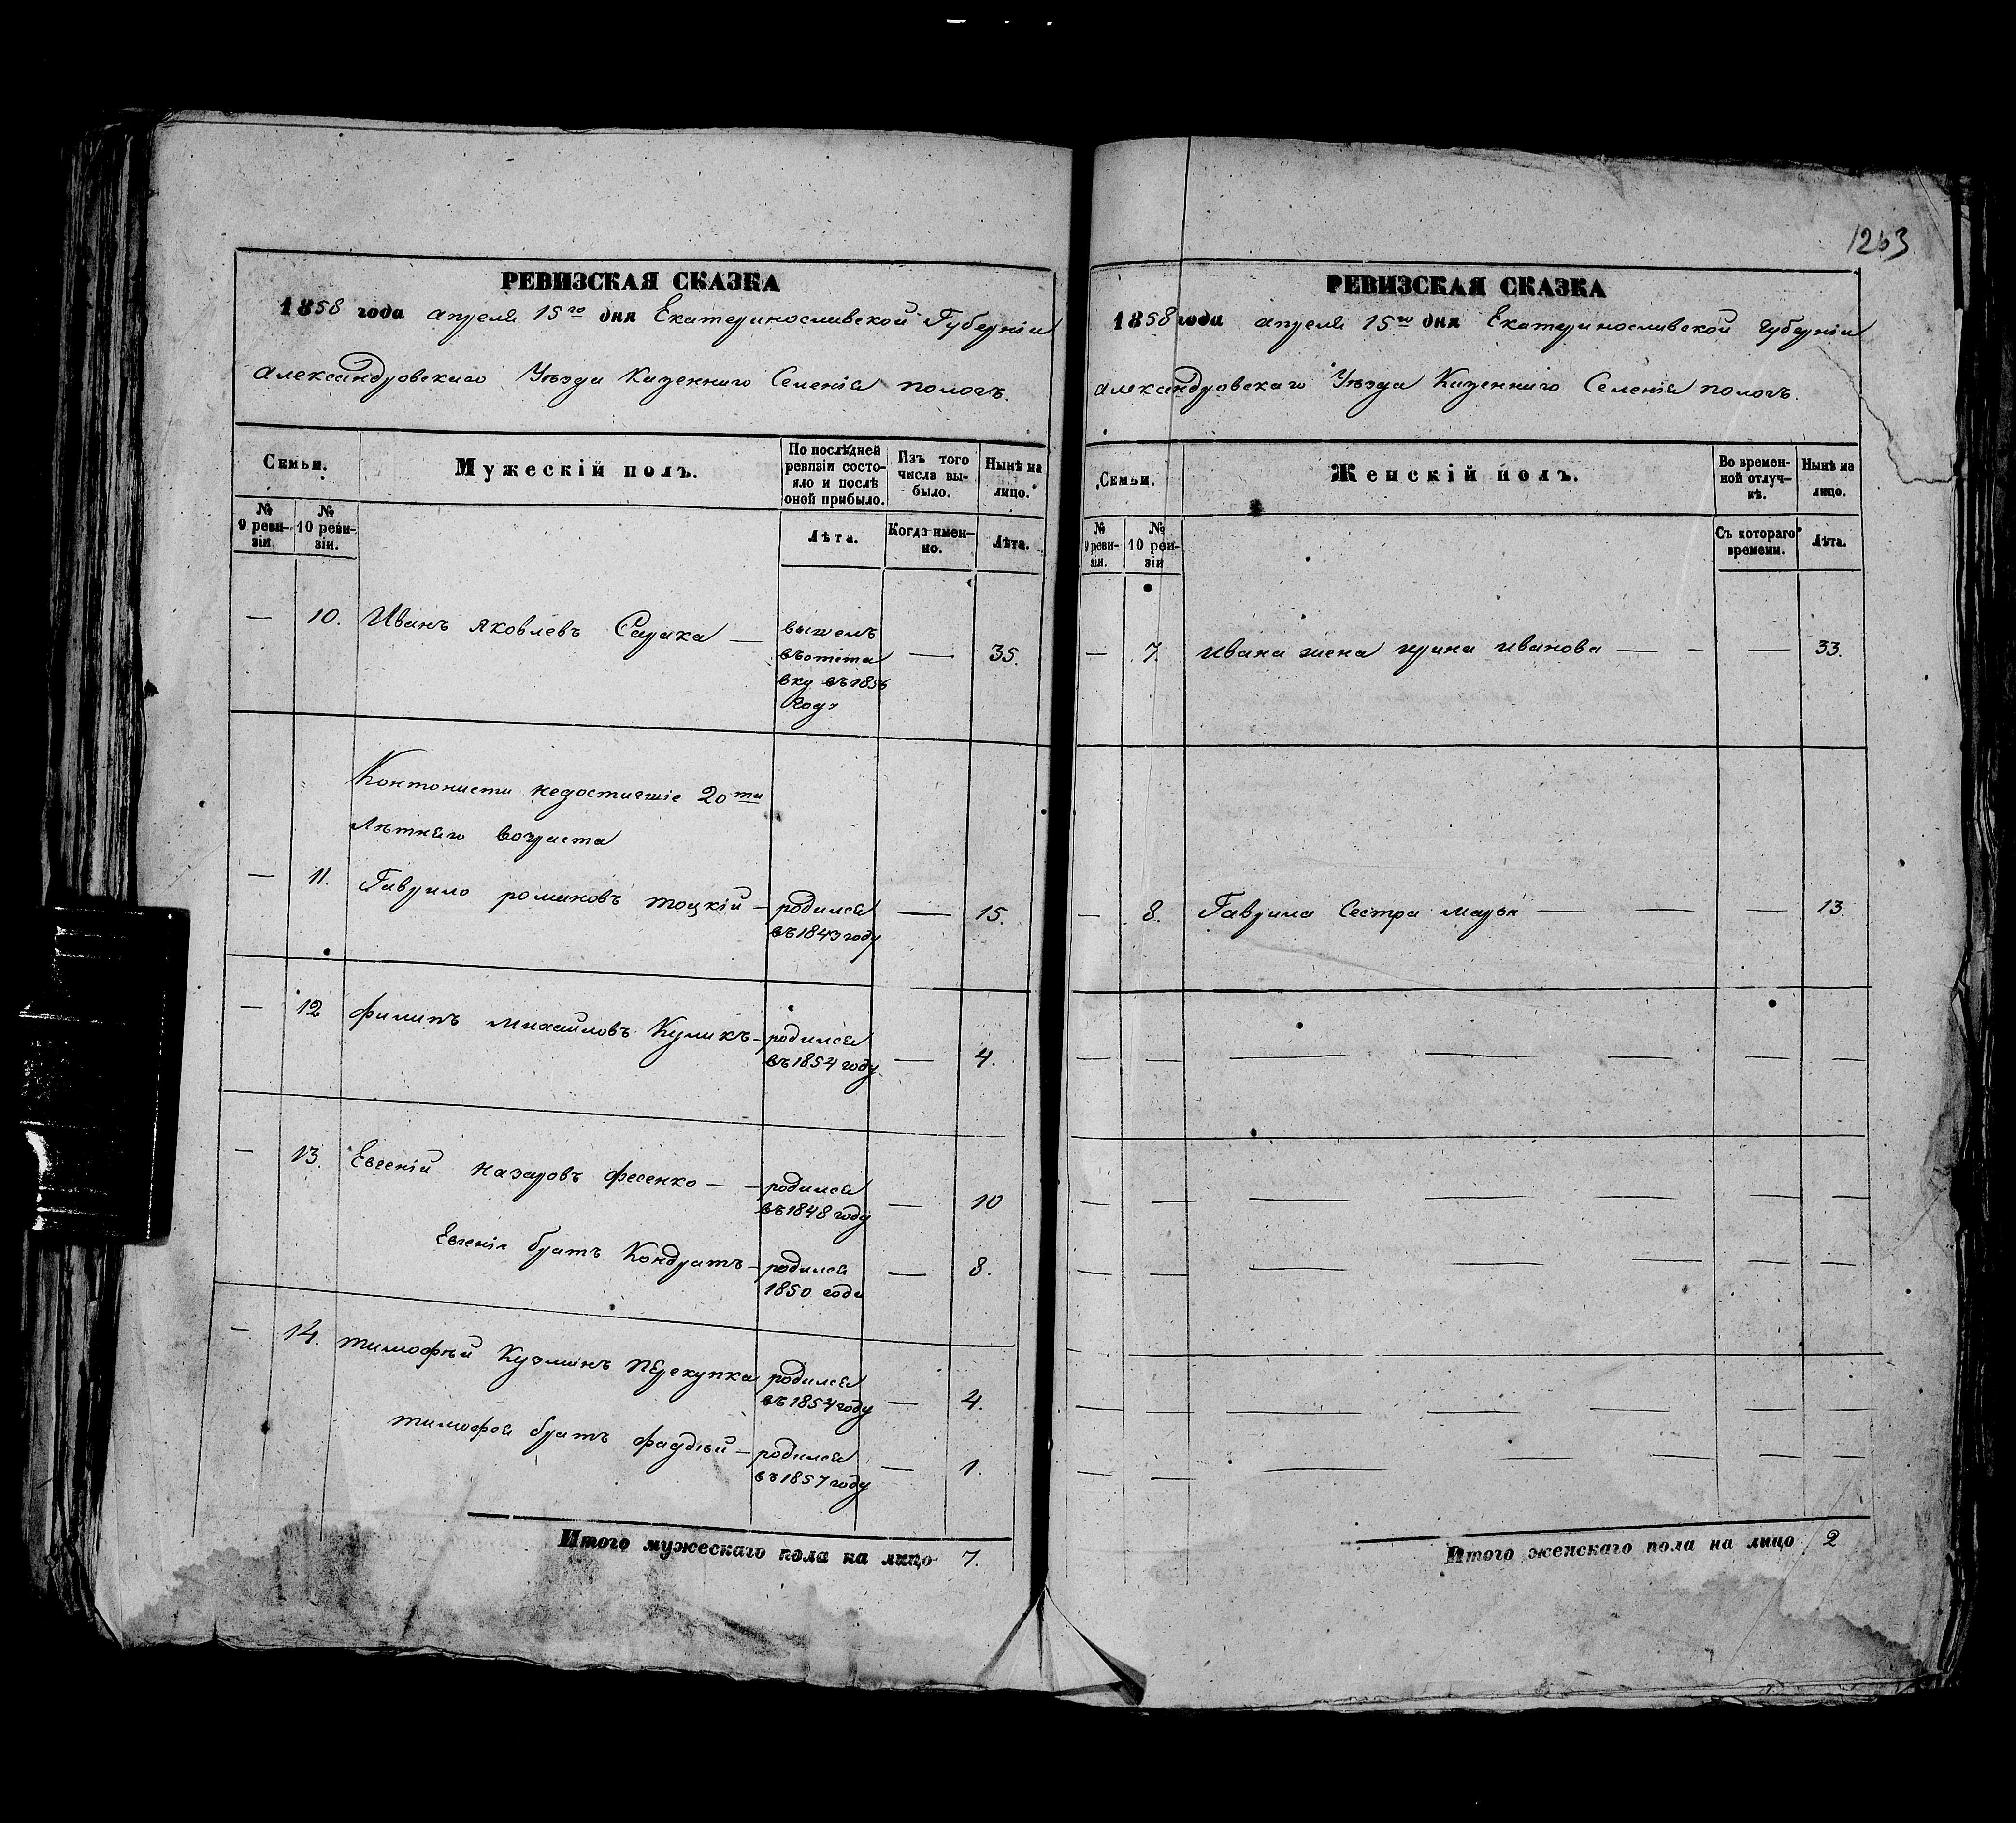 РЕВИЗСКАЯ СКАЗКА
1858 года апреля 15го дня Екатеринославской Губерніи
Александровскаго Уѣзда Казеннаго Селенія пологъ.
Семьи.
Мужескій полъ.
По послѣдней ревизіи состо-
яло и послѣ
оной прибыло.
Изъ того
числа вы-
было.
Нынѣ на
лицо.
№
9 реви-
зіи.
№
10 реви-
зіи.
Лѣта.
Когда имен-
но.
Лѣта.
— 10. Иванъ Яковлевъ —
вышелъ
въотста
вку въ1856
Году
— 35.
Кантонисти недостигшіе 20ти
Лѣтняго возраста
— 11. Гаврило романовъ тоцкій — родился
въ1843 году
— 15.
— 12 филипъ михайловъ Куликъ — родился
въ1854 году
— 4.
— 13. Евгеній назаровъ фесенко — — родился
въ1848 году
— 10
Евгенія братъ Кондратъ — родился
1850 года
— 8.
— 14. тимофѣй Кузминъ перекупка родился
въ1854 году
— 4.
тимофея братъ — родился
въ1857 году
— 1.
Итого мужескаго пола на лицо 7.
1263
РЕВИЗСКАЯ СКАЗКА
1858 года апреля 15го дня Екатеринославской Губерніи
Александровскаго Уѣзда Казеннаго Селенія пологъ.
Семьи.
Женскій полъ.
Во времен-
ной отлуч-
кѣ.
Нынѣ на
лицо.
№
9 реви-
зіи.
№
10 реви-
зіи
Съ котораго
времени.
Лѣта.
— 7. Ивана жена ирина иванова — — — 33.
— 8. Гаврила Сестра марья — — — 13.
Итого женскаго пола на лицо 2